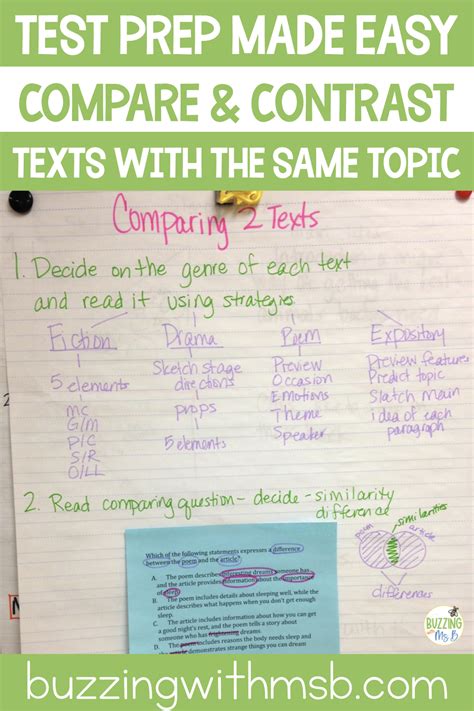 TEST PREP MADE EASY
COMPARE & CONTRAST
TEXTS WITH THE SAME TOPIC
Comparing 2 Texts
1. Decide on the genre of each text
and read it using strategies
Fiction
5 elements
MC
G/M
P/C
S/R
O/LL
Drama
Sketch stage
directions
props
5 elements
Poem
Preview
Occasion
Emotions
Theme
Speaker
Expository
Preview features
Predict topic
Slatch main
idea of each
paragraph
2. Read comparing question - decide - similarity
difference
poem
similarities
article
differences
Which of the following statements expresses a difference
between the poem and the article?
A. The poem describes interesting dreams someone has
and provides information about the importance
sleep
B. The poem includes details about sleeping well, while the
article describes what happens when you don't get enough
sleep.
C. The article includes information about how you can get
a good night's rest, and the poem tells a story about
someone who has frightening dreams
D. The poem includes reasons the body needs sleep and
the article demonstrates strange things you can dream
about.
BUZZING
with
Ms. B
buzzingwithmsb.com